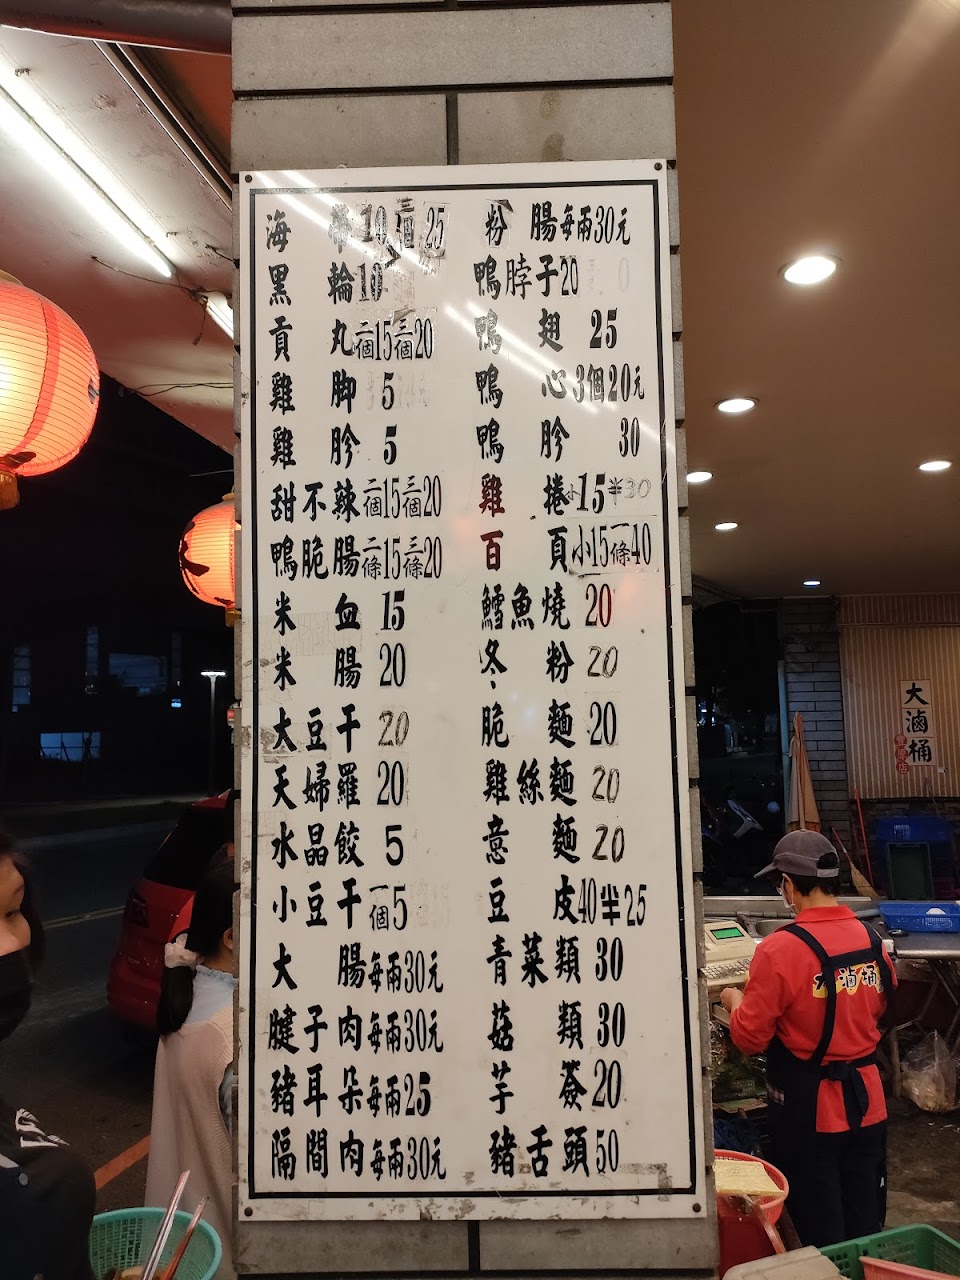 海帶10三個25
黑輪10
貢丸二個15三個20
雞腳5
雞胗5
甜不辣二個15三個20
鴨脆腸二條15三條20
米血15
米腸20
大豆干20
天婦羅20
水晶餃5
小豆干一個5
大腸每兩30元
腱子肉每兩30元
豬耳朵每兩25
隔間肉每兩30元
粉腸每兩30元
鴨脖子20
鴨翅25
鴨心3個20元
鴨胗30
雞捲小15半30
百頁小15一條40
鱈魚燒20
冬粉20
脆麵20
雞絲麵20
意麵20
豆皮40半25
青菜類30
菇類30
芋簽20
豬舌頭50
大滷桶
大滷桶